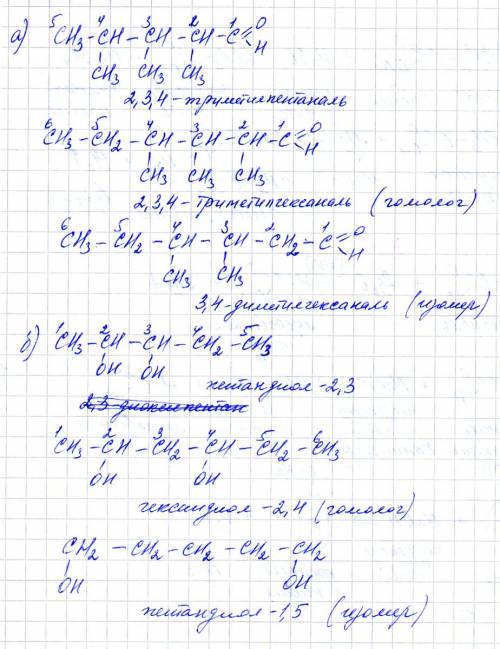 а) ⁵CH₃ – ⁴CH – ³CH – ²CH – ¹C =O
CH₃ CH₃ CH₃ H
2,3,4-триметилпентаналь
⁶CH₃ – ⁵CH₂ – ⁴CH – ³CH – ²CH – ¹C =O
CH₃ CH₃ CH₃ H
2,3,4-триметилгексаналь (гомолог)
⁶CH₃ – ⁵CH₂ – ⁴CH – ³CH – ²CH₂ – ¹C =O
CH₃ CH₃ H
3,4-диметилгексаналь (изомер)
б) ¹CH₃ – ²CH – ³CH – ⁴CH₂ – ⁵CH₃
OH OH
пентандиол-2,3
¹CH₃ – ²CH – ³CH₂ – ⁴CH – ⁵CH₂ – ⁶CH₃
OH OH
гександиол-2,4 (гомолог)
CH₂ – CH₂ – CH₂ – CH₂ – CH₂
OH OH
пентандиол-1,5 (изомер)